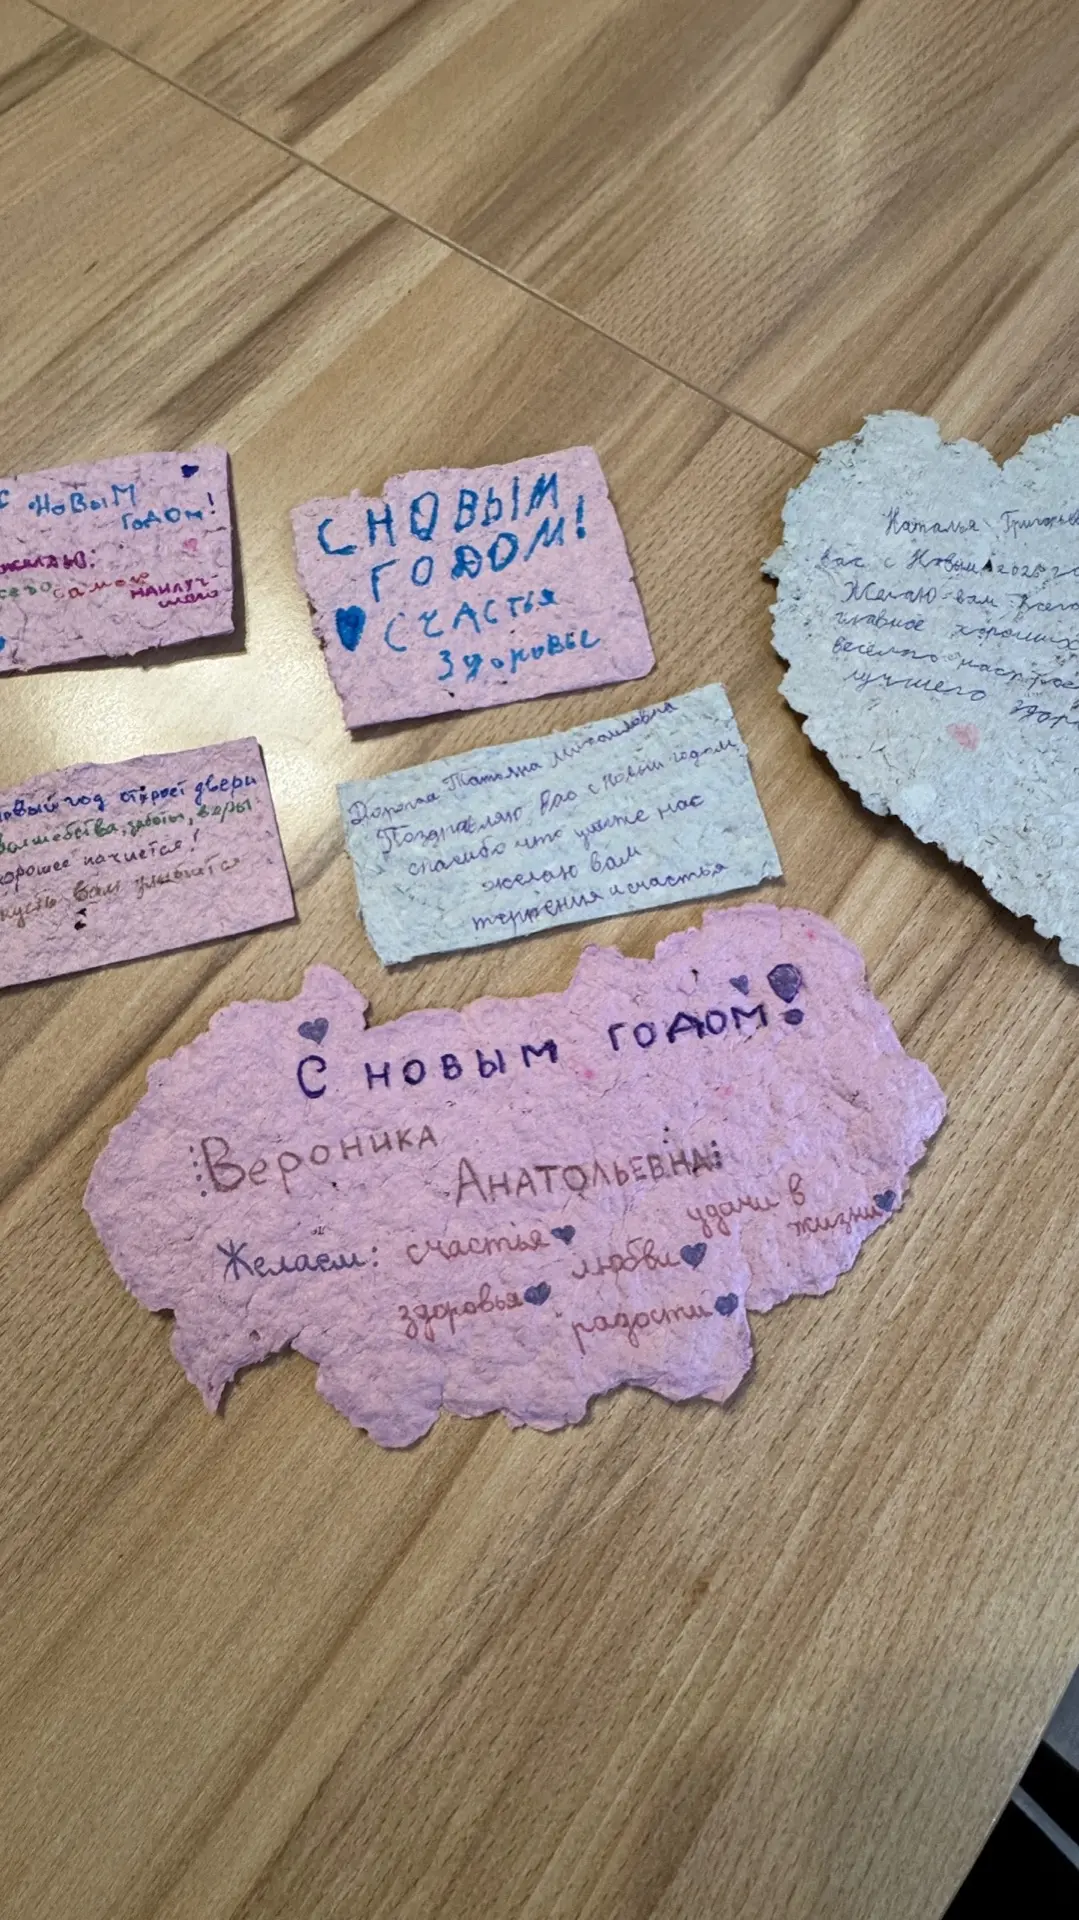 С НОВЫМ
ГОДОМ!
ЖЕЛАЮ:
самого
НАИЛУЧ-
шего
С НОВЫМ
ГОДОМ!
СЧАСТЬЯ
Здоровье
Наталья Григорьев
вас с Новым 2026 го
Желаю вам всего
главное хороших
весёлого настрое
лучшего здор
новый год откроет двери
волшебства, заботы, веры
хорошее начнётся!
пусть вам
Дорогая Татьяна Михайловна
Поздравляю Вас с Новым годом,
спасибо что учите нас
желаю вам
терпения и счастья
С НОВЫМ ГОДОМ!
ВЕРОНИКА
АНАТОЛЬЕВНА:
Желаем: счастья удачи в
жизни
любви
здоровья
радости